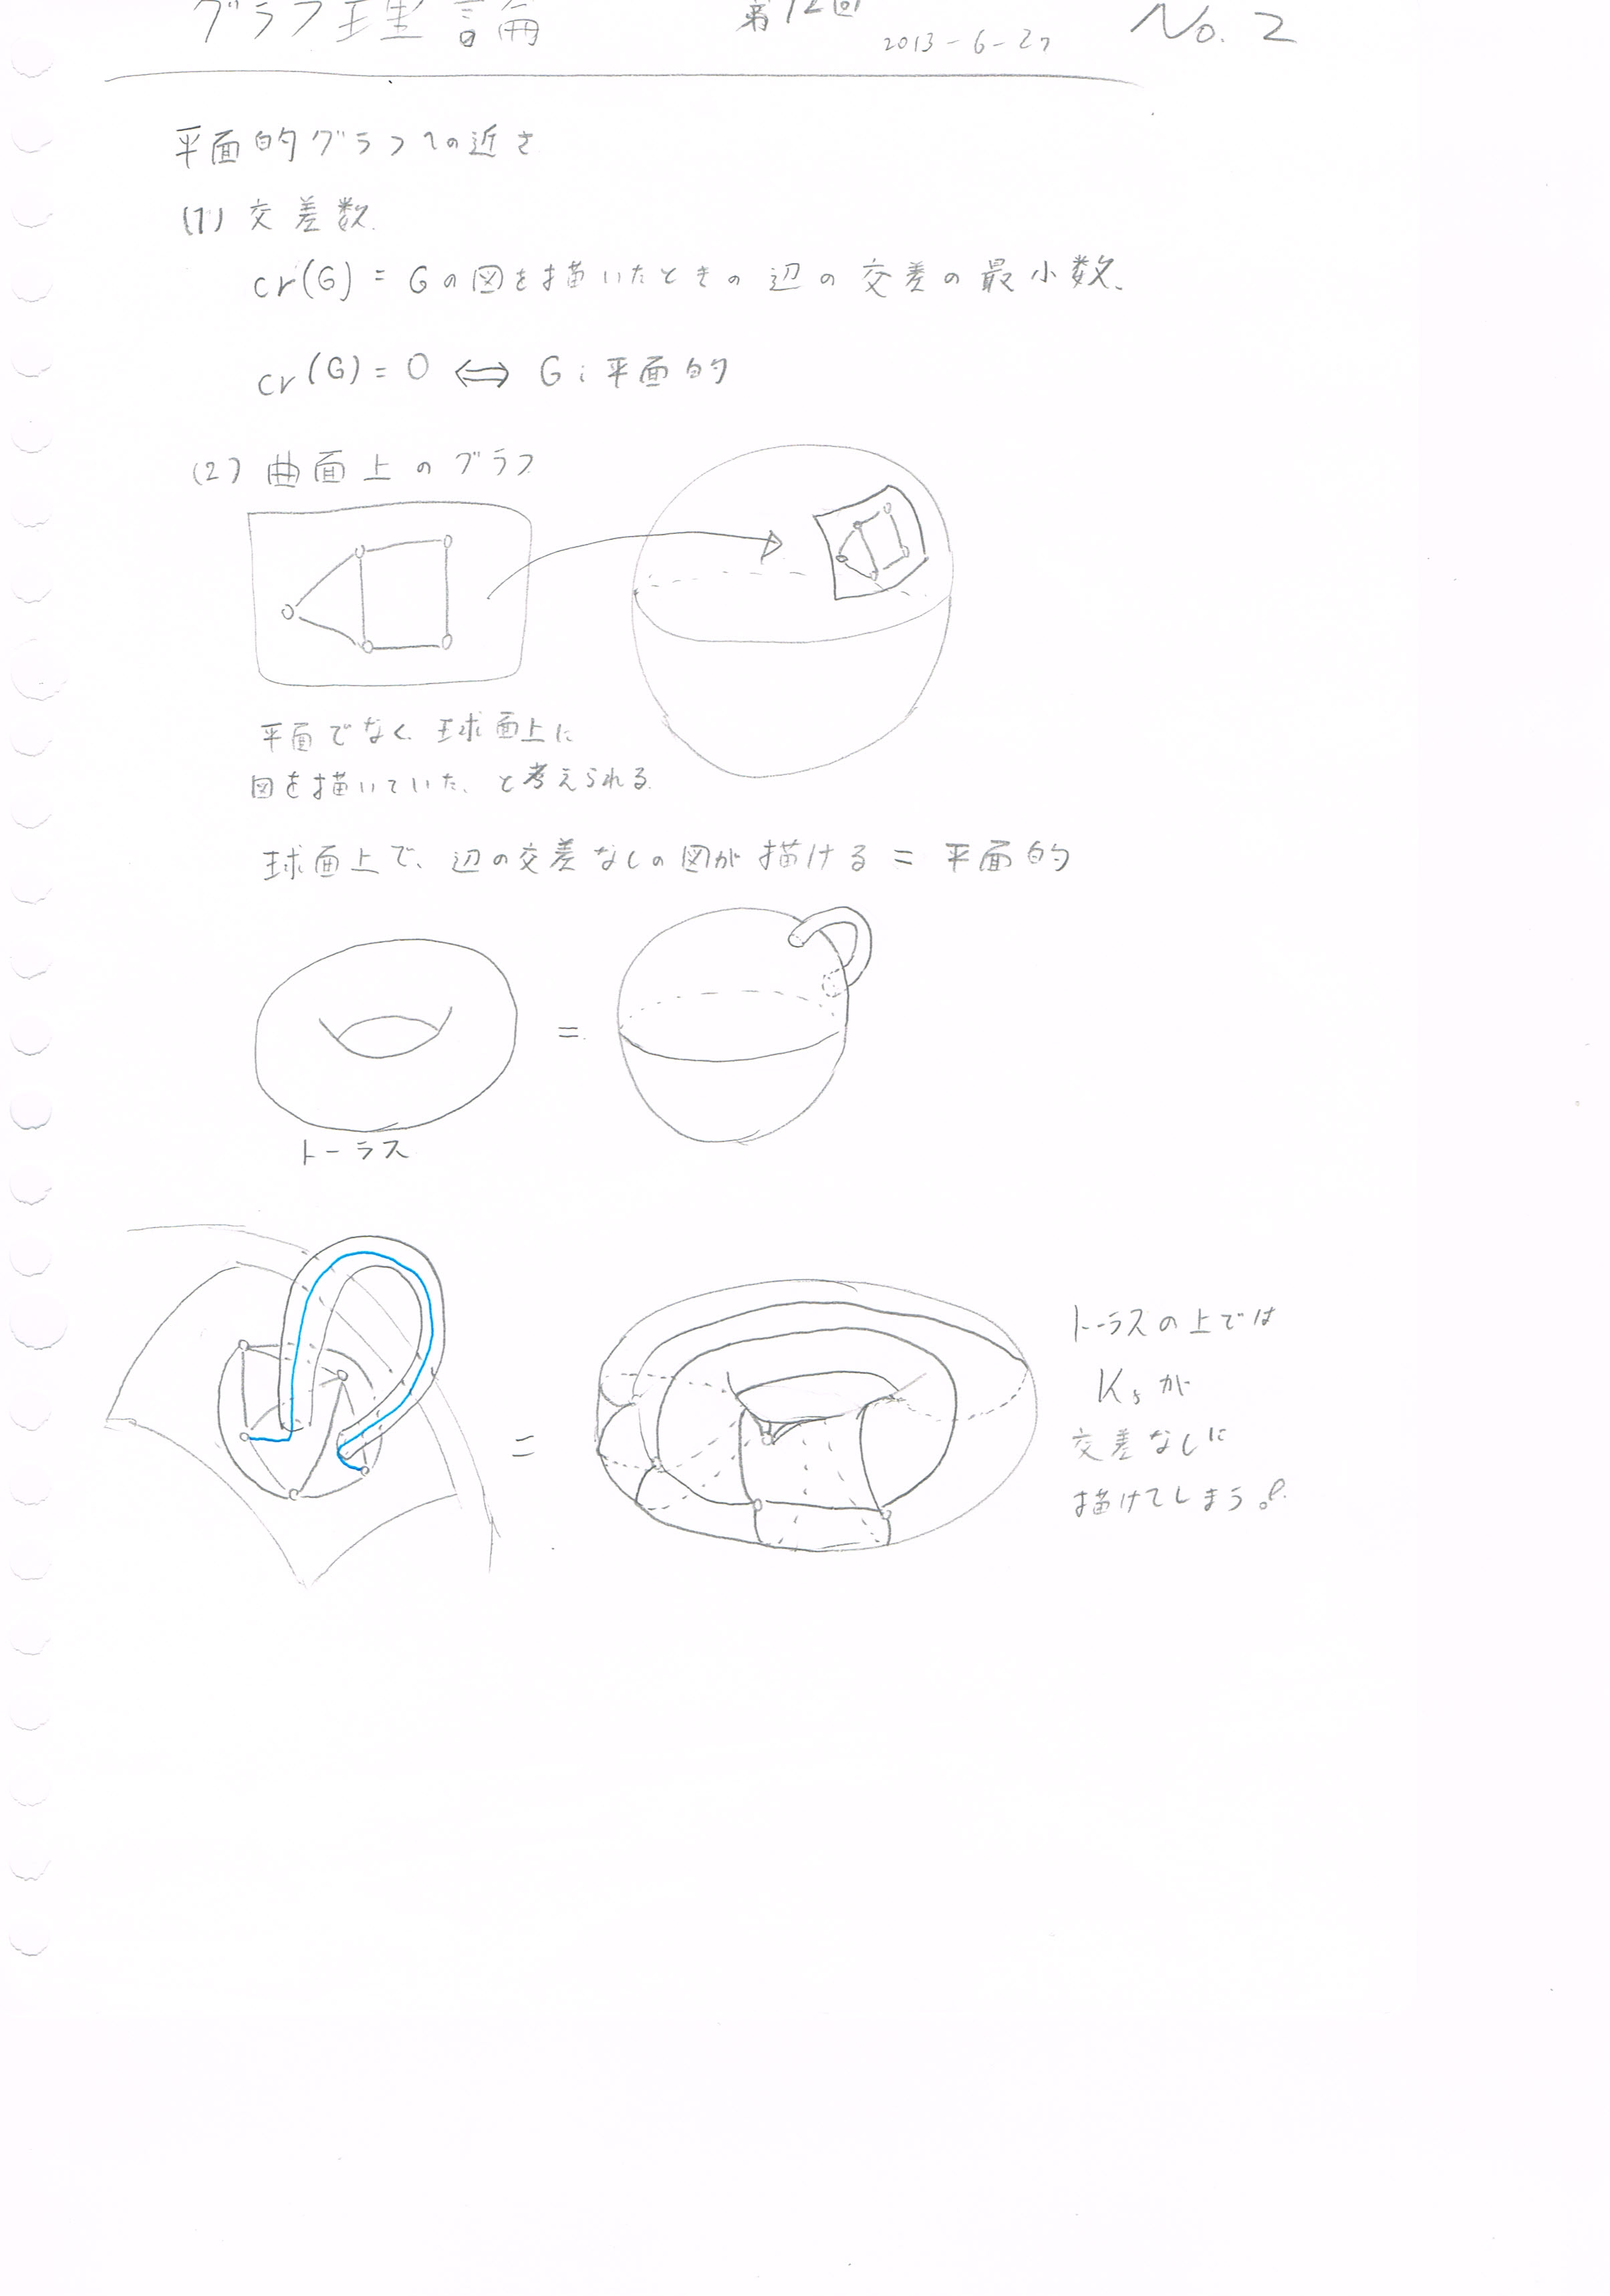 グラフ理論 第12回 2013-6-27 No. 2
平面的グラフへの近さ
(1) 交差数.
cr(G) = Gの図を描いたときの辺の交差の最小数.
cr(G) = 0 ⇔ G: 平面的
(2) 曲面上のグラフ
平面でなく、球面上に
図を描いていた、と考えられる.
球面上で、辺の交差なしの図が描ける = 平面的
=
トーラス
=
トーラスの上では
K5が
交差なしに
描けてしまう。